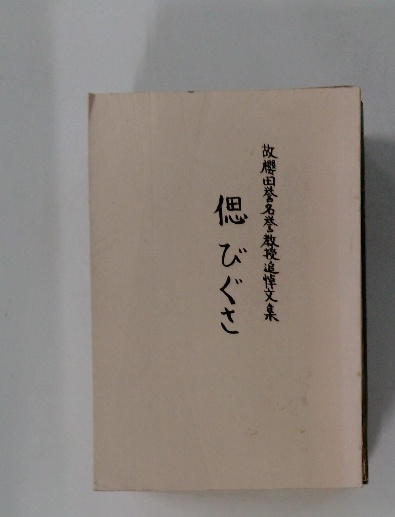 故櫻田誉名誉教授追悼文集
偲びぐさ